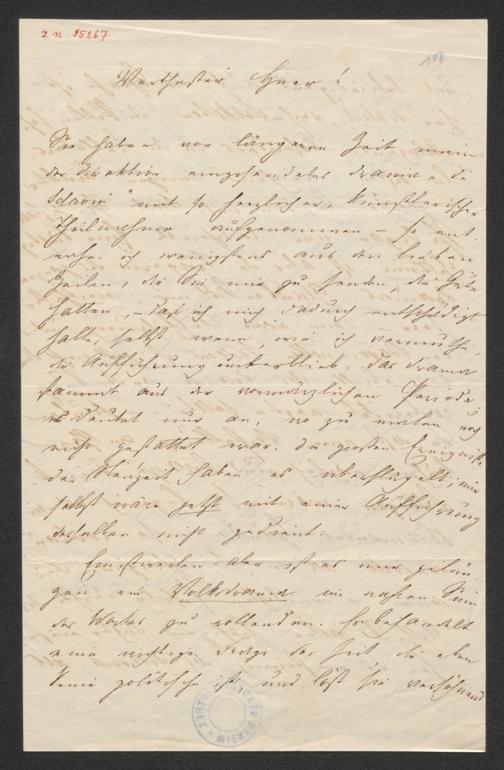 I. N. 85267
188
Werthester Herr!
Sie haben vor längerer Zeit mein
der Direktion eingesendetes Drama "Die
Sclavin" mit so herzlicher, künstlerischer
Theilnahme aufgenommen – so ent-
nehme ich wenigstens aus den lieben
Zeilen, die Sie mir zu senden die Güte
hatten, – daß ich mich dadurch entschädigt
halte, selbst wenn, wie ich vermuthe,
die Aufführung unterblieb. Das Drama
stammt aus der vormärzlichen Periode;
es deutet nur an, wo zu malen noch
nicht gestattet war. Die großen Ereignisse
der Neuzeit haben es überflügelt; mir
selbst wäre jetzt mit einer Aufführung
desselben nicht gedient.
Einstweilen aber ist es mir gelun-
gen ein Volksdrama im wahren Sinn
des Wortes zu vollenden. Es behandelt
eine wichtige Frage der Zeit die eben
keine politische ist, und löst sie versöhnend